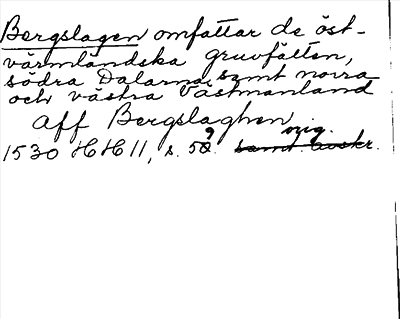 Bergslagen omfattar de öst-
värmländska gruvfälten,
södra Dalarna, samt norra
och västra Västmanland
aff Bergslaghen
1530 HH 11, s. 59. orig. samt. avskr.